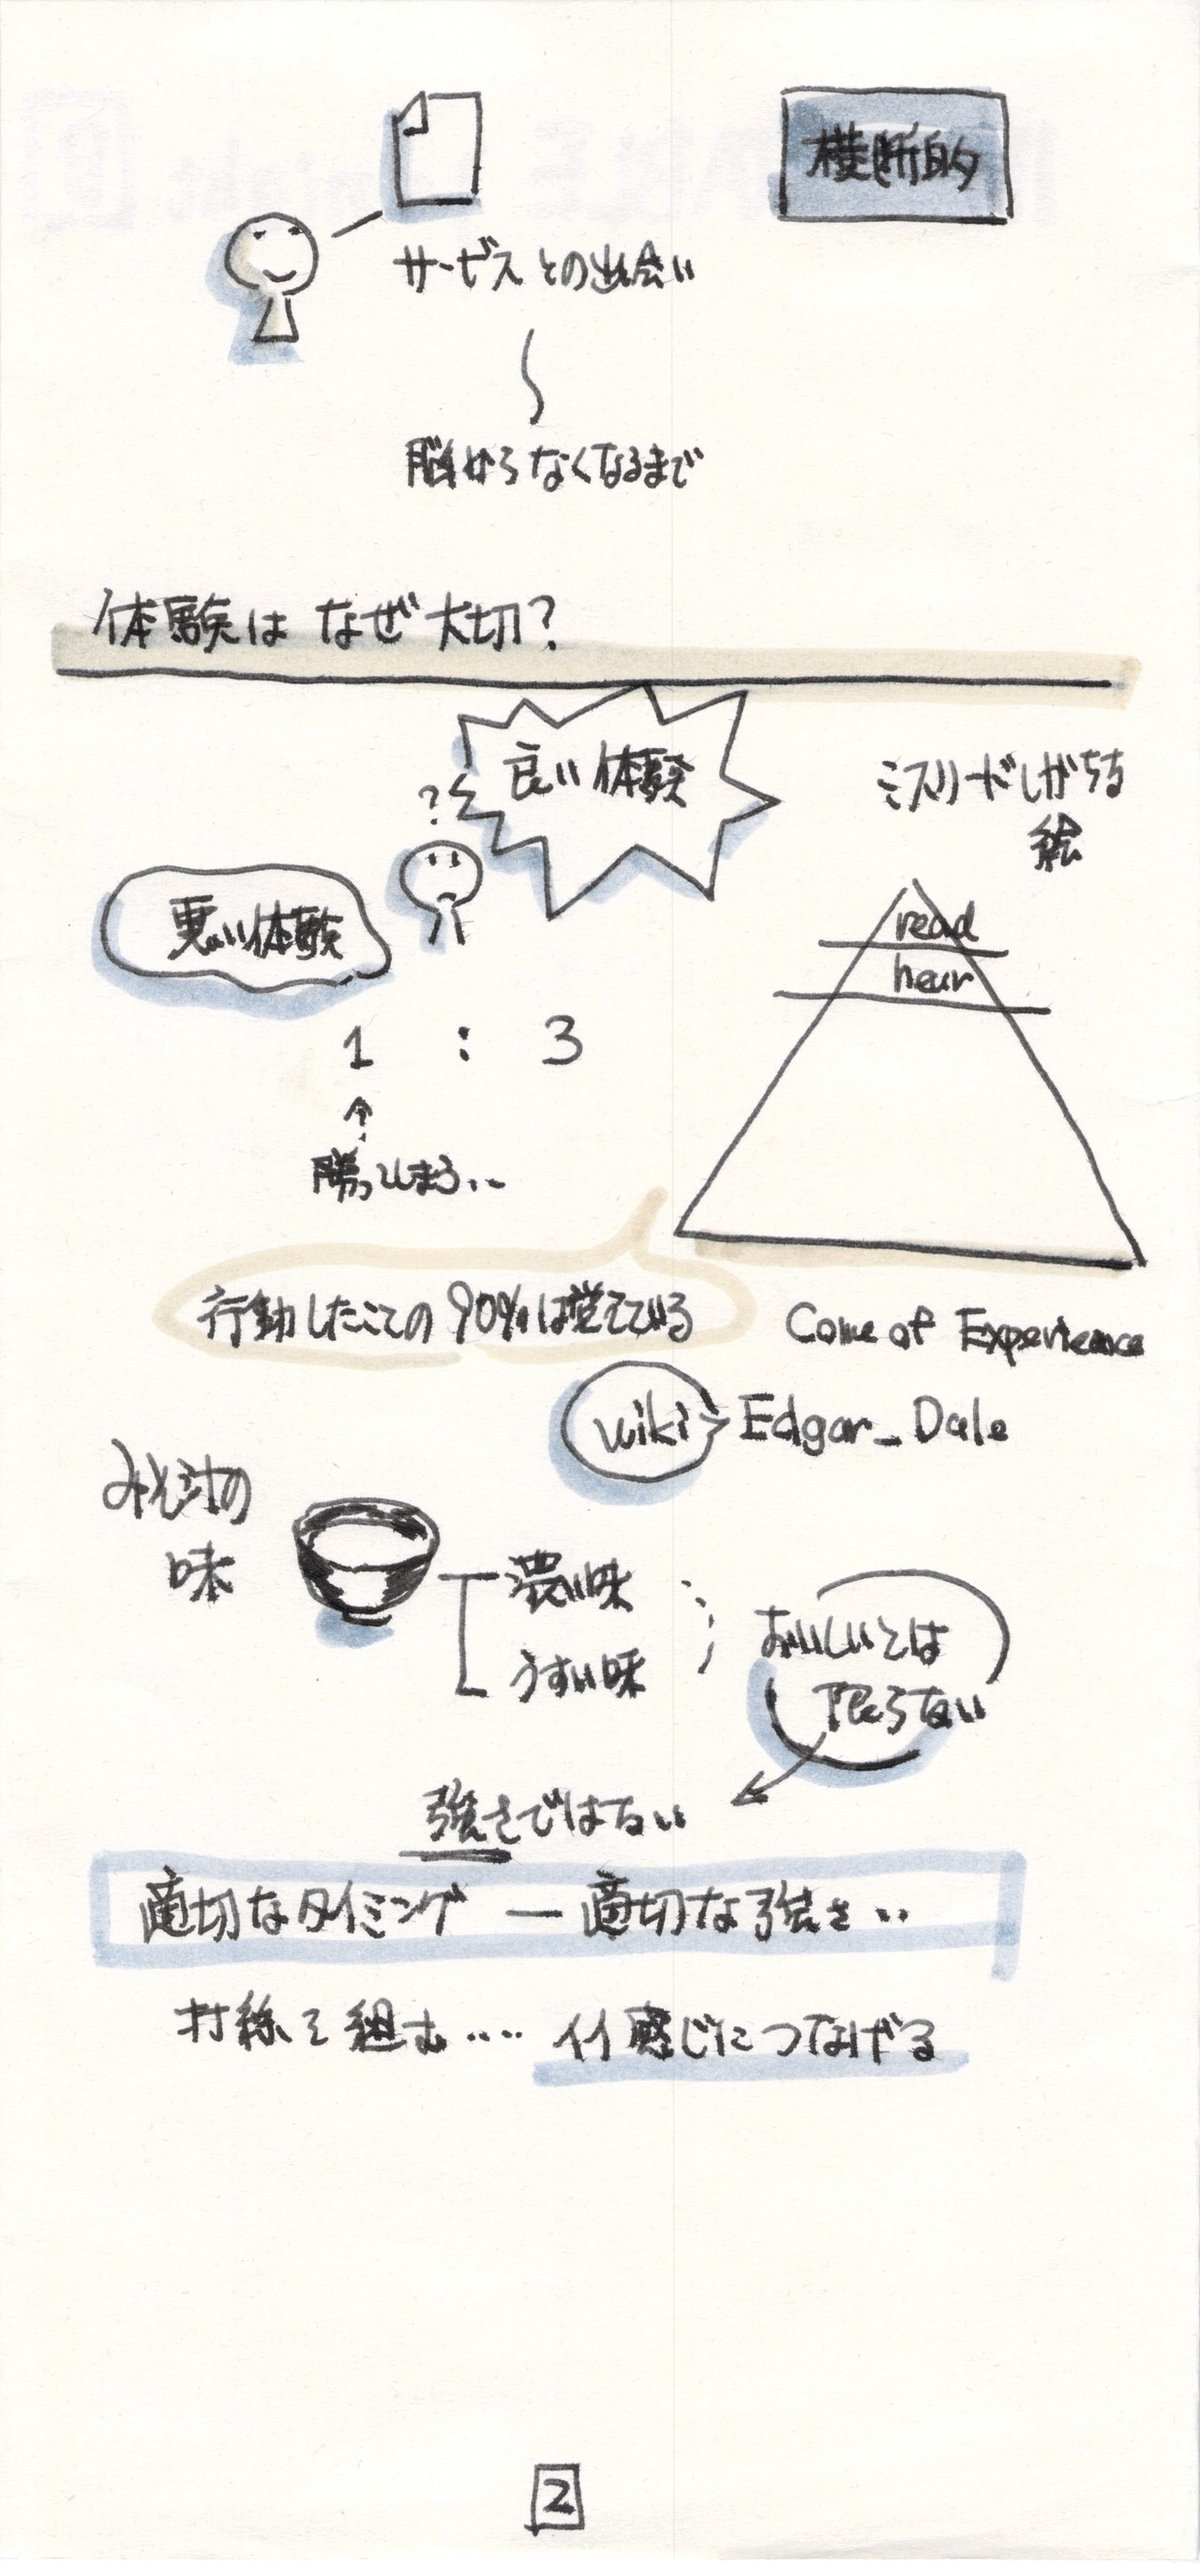 横断的
サービスとの出会い
脳からなくなるまで
体験はなぜ大切?
良い体験
?
悪い体験
ミスリードしがちな
絵
read
hear
1 : 3
勝ってしまう..
行動したことの90%は覚えている
Cone of Experience
wiki Edgar_Dale
みそ汁の
味
濃い味
うすい味
おいしいとは
限らない
強さではない
適切なタイミング ー 適切な強さ..
打線を組む.... イイ感じにつなげる
2